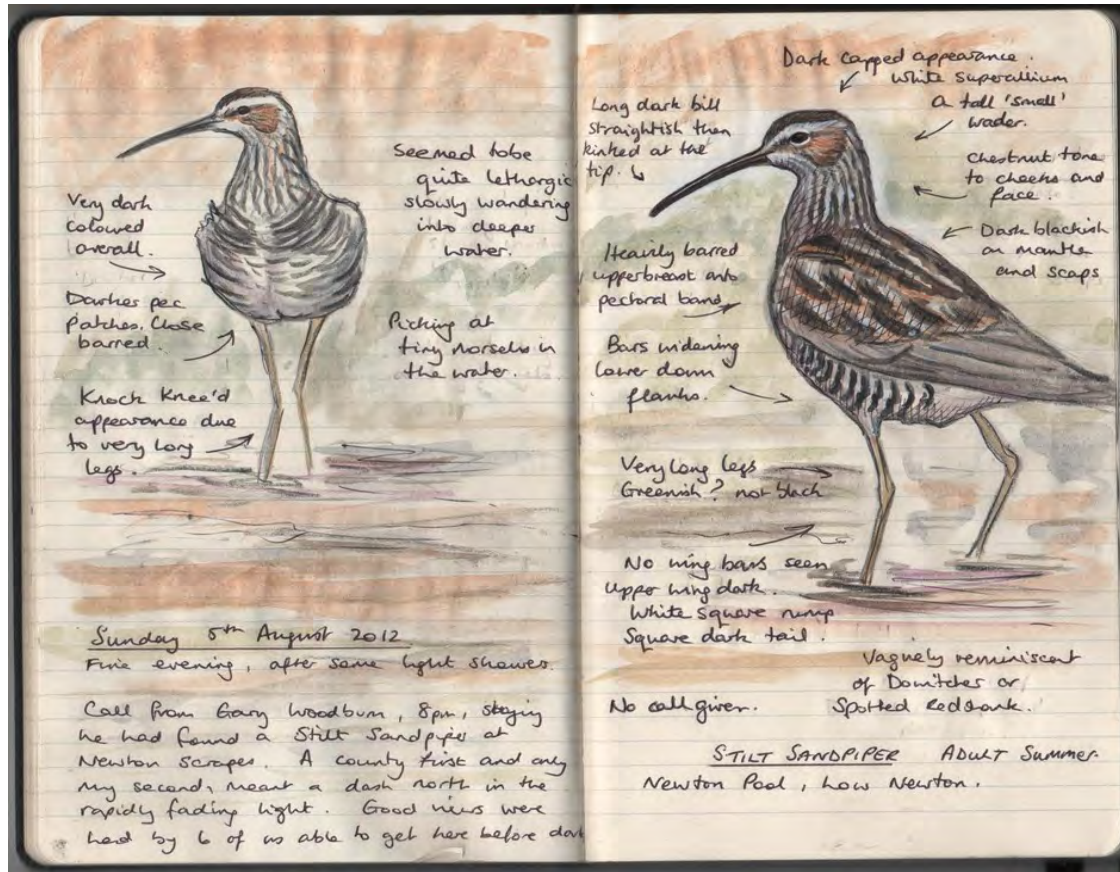 Very dark
coloured
overall.
Darker pec
patches. Close
barred.
Knock Knee'd
appearance due
to very long
legs.
Seemed to be
quite lethargic
slowly wandering
into deeper
water.
Picking at
tiny morsels in
the water.
Sunday 5th August 2012
Fine evening, after some light showers.
Call from Gary Woodburn, 8pm, saying
he had found a Stilt Sandpiper at
Newton Scrapes. A county first and only
my second, meant a dash north in the
rapidly fading light. Good views were
had by 6 of us able to get here before dark
Dark capped appearance.
White superallium
a tall 'small'
wader.
Long dark bill
straightish then
kinked at the
tip.
Chestnut tone
to cheeks and
face.
Dark blackish
on mantle
and scaps
Heavily barred
upperbreast onto
pectoral band
Bars widening
lower down
flanks.
Very long legs
Greenish? not black
No wing bars seen
Upper wing dark.
White square rump
Square dark tail.
Vaguely reminiscent
of Dowitcher or
Spotted Redshank.
No call given.
STILT SANDPIPER ADULT Summer.
Newton Pool, Low Newton.